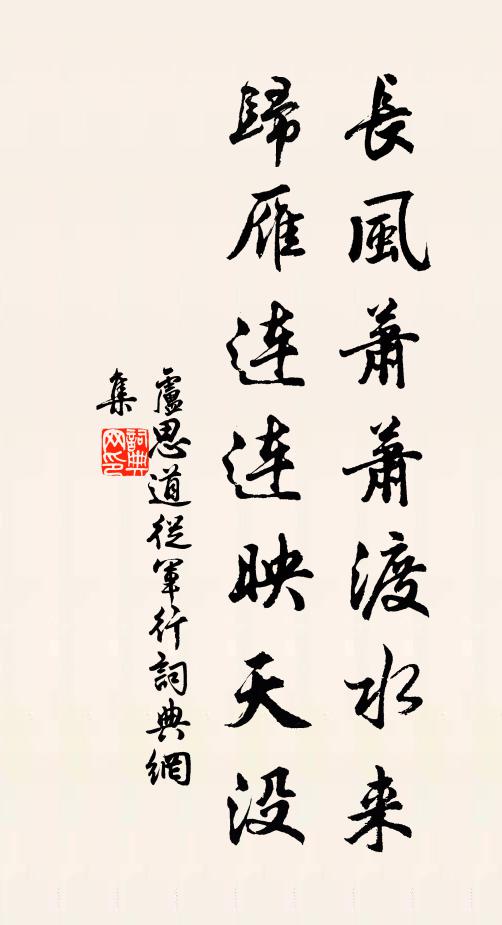 長風蕭蕭渡水来
歸雁连连映天没
盧思道從軍行詞典網
集
詞典
网印